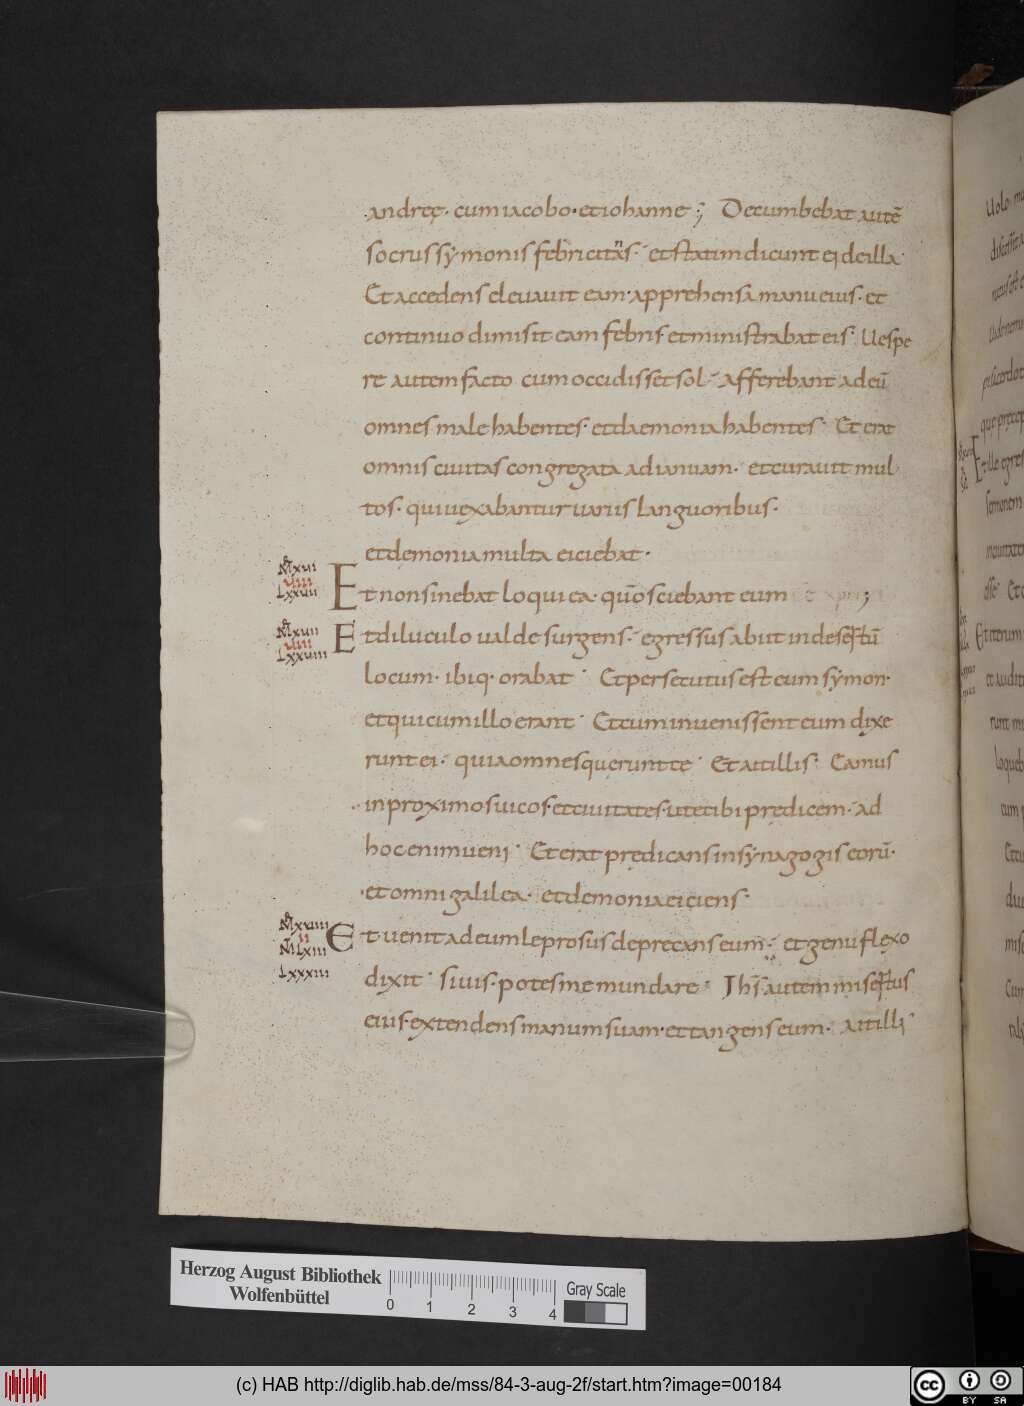 andreę· cum iacobo· et iohanne; Decumbebat autē
socrus symonis febricitās· et statim dicunt ei de illa·
Et accedens eleuauit eam· apprehensa manu eius· et
continuo dimisit eam febris et ministrabat eis· Uespe
re autem facto cum occidisset sol· afferebant ad eū
omnes male habentes· et daemonia habentes· Et erat
omnis ciuitas congregata ad ianuam· et curauit mul
tos· qui uexabantur uariis languoribus·
et demonia multa eiciebat·
Mr xvii
viiii
L xxviii
Et non sinebat loqui ea· quō sciebant eum
Mr xvii
viiii
L xxviiii
Et diluculo ualde surgens· egressus abiit in desertū
locum· ibiq· orabat· Et persecutus est eum symon·
et qui cum illo erant· Et cum inuenissent eum dixe
runt ei· quia omnes querunt te· Et ait illis· Eamus
in proximos uicos· et ciuitates· ut et ibi prędicem· ad
hoc enim ueni· Et erat prędicans in synagogis eorū·
et omni galilea· et demonia eiciens·
Mr xviiii
ii
Mt lxiii
L xxxiii
Et uenit ad eum leprosus deprecans eum· et genu flexo
dixit· si uis· potes me mundare· Ihs autem misertus
eius· extendens manum suam· et tangens eum· ait illi·
Herzog August Bibliothek
Wolfenbüttel
0 1 2 3 4
Gray Scale
(c) HAB http://diglib.hab.de/mss/84-3-aug-2f/start.htm?image=00184
cc BY SA